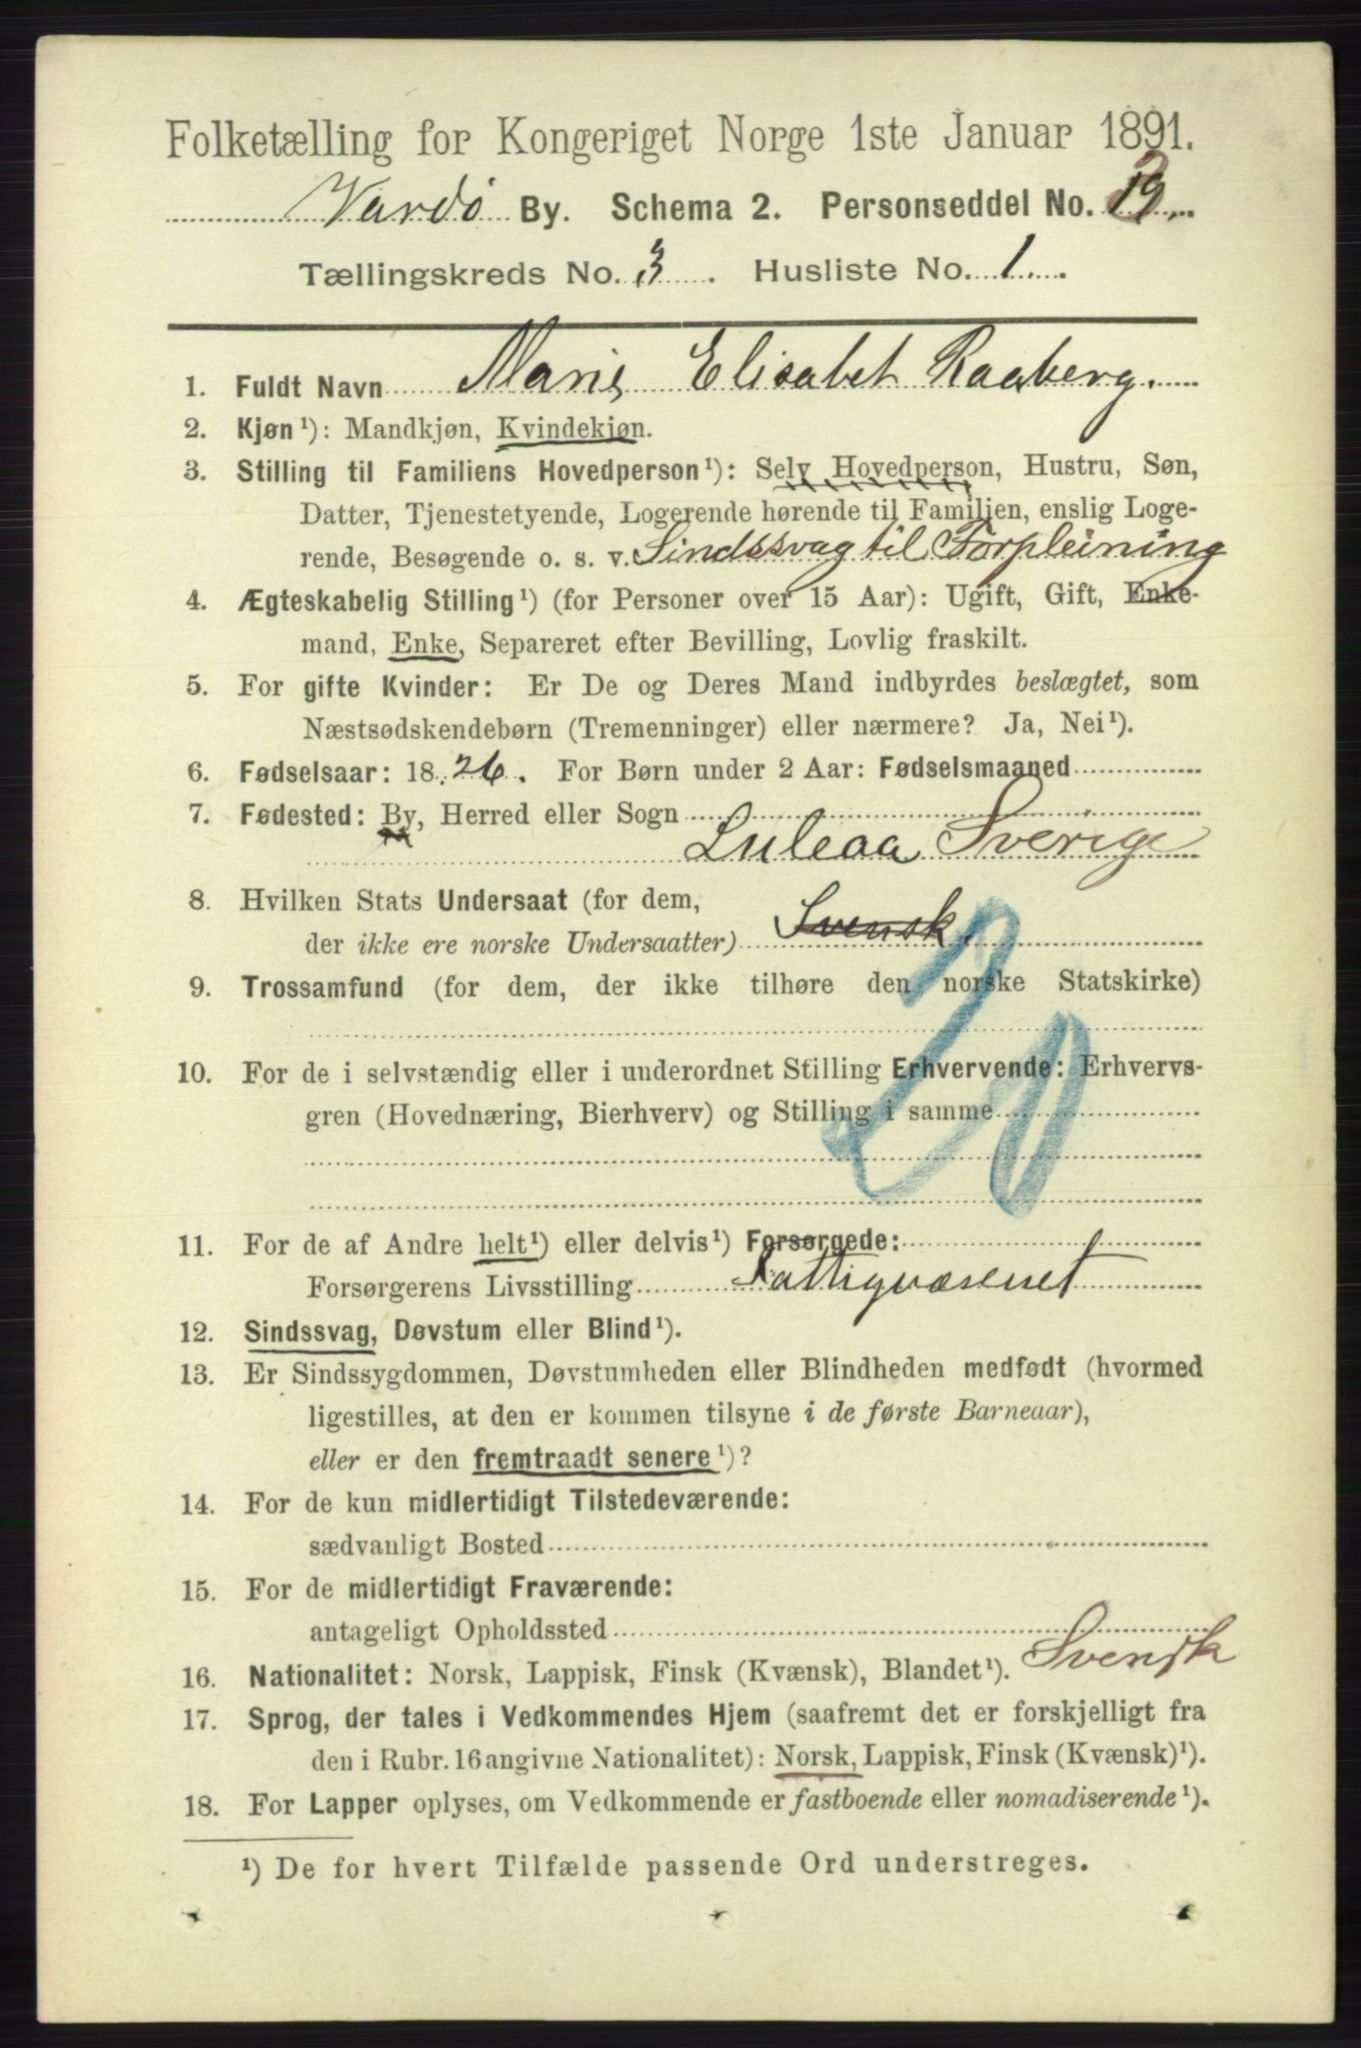 Folketælling for Kongeriget Norge 1ste Januar 1891.
Vardö By. Schema 2. Personseddel No. 19.
Tællingskreds No. 3. Husliste No. 1.
1. Fuldt Navn Marie Elisabet Raaberg.
2. Kjøn¹): Mandkjøn, Kvindekjøn.
3. Stilling til Familiens Hovedperson¹): Selv Hovedperson, Hustru, Søn,
Datter, Tjenestetyende, Logerende hørende til Familien, enslig Loge-
rende, Besøgende o. s. v. Sindssvag til Forpleining
4. Ægteskabelig Stilling¹) (for Personer over 15 Aar): Ugift, Gift, Enke-
mand, Enke, Separeret efter Bevilling, Lovlig fraskilt.
5. For gifte Kvinder: Er De og Deres Mand indbyrdes beslægtet, som
Næstsødskendebørn (Tremenninger) eller nærmere? Ja, Nei¹).
6. Fødselsaar: 1826. For Børn under 2 Aar: Fødselsmaaned
7. Fødested: By, Herred eller Sogn
Luleaa Sverige
8. Hvilken Stats Undersaat (for dem,
der ikke ere norske Undersaatter) Svensk.
9. Trossamfund (for dem, der ikke tilhøre den norske Statskirke)
20
10. For de i selvstændig eller i underordnet Stilling Erhvervende: Erhvervs-
gren (Hovednæring, Bierhverv) og Stilling i samme
11. For de af Andre helt¹) eller delvis¹) Forsørgede:
Forsørgerens Livsstilling Fattigvæsenet
12. Sindssvag, Døvstum eller Blind¹).
13. Er Sindssygdommen, Døvstumheden eller Blindheden medfødt (hvormed
ligestilles, at den er kommen tilsyne i de første Barneaar),
eller er den fremtraadt senere¹)?
14. For de kun midlertidigt Tilstedeværende:
sædvanligt Bosted
15. For de midlertidigt Fraværende:
antageligt Opholdssted
16. Nationalitet: Norsk, Lappisk, Finsk (Kvænsk), Blandet¹). Svensk
17. Sprog, der tales i Vedkommendes Hjem (saafremt det er forskjelligt fra
den i Rubr. 16 angivne Nationalitet): Norsk, Lappisk, Finsk (Kvænsk)¹).
18. For Lapper oplyses, om Vedkommende er fastboende eller nomadiserende¹).
¹) De for hvert Tilfælde passende Ord understreges.